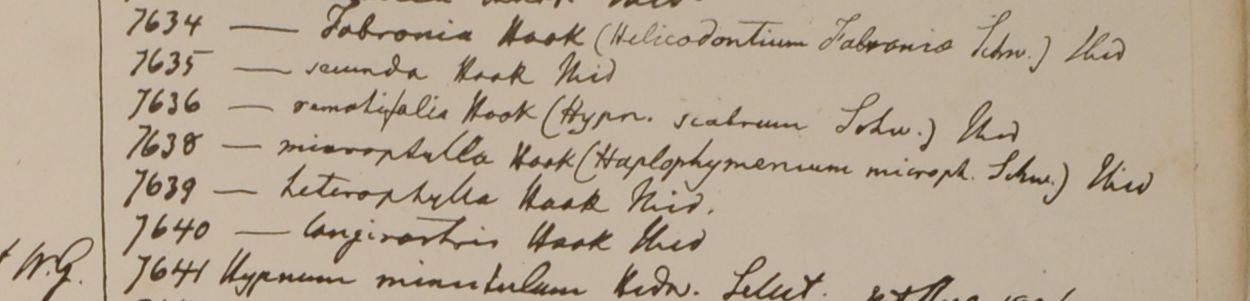 7634 — Fabronia Hook (Helicodontium Fabronia Schw.) Ibid
7635 — secunda Hook Ibid
7636 — rematifolia Hook (Hypn. scabrum Schw.) Ibid
7638 — microphylla Hook (Haplohymenium microph. Schw.) Ibid
7639 — heterophylla Hook Ibid.
7640 — longirostris Hook Ibid
W.G.
7641 Hypnum minutulum Hedw. Select.